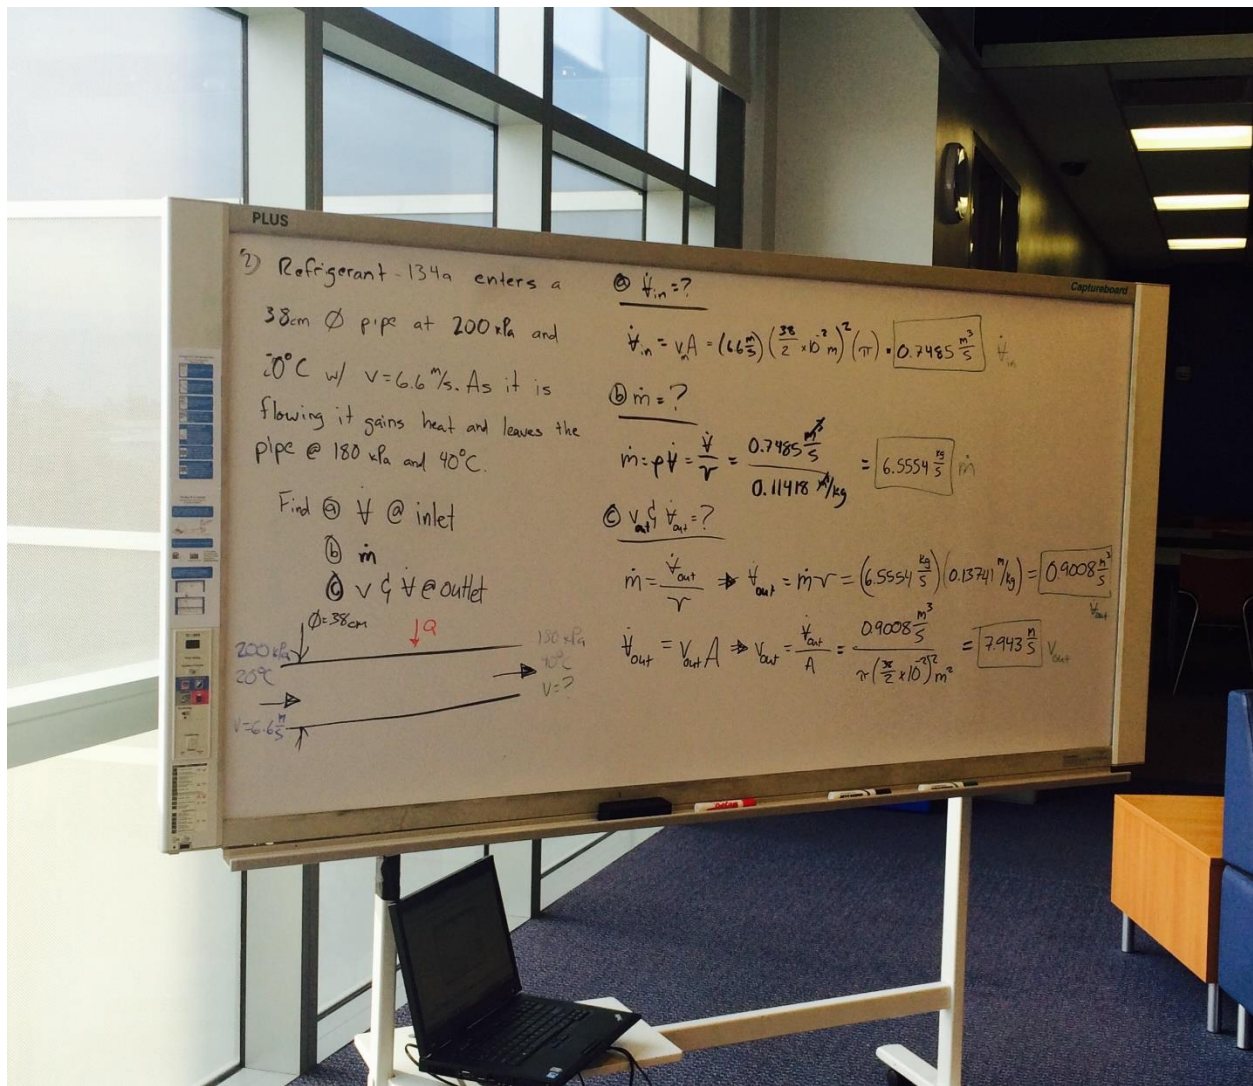 PLUS
Captureboard
2) Refrigerant-134a enters a
38cm Ø pipe at 200 kPa and
20°C w/ v=6.6 m/s. As it is
flowing it gains heat and leaves the
pipe @ 180 kPa and 40°C.
Find ⓐ V̶̇ @ inlet
ⓑ ṁ
ⓒ v & V̶̇ @ outlet
Ø=38cm
Q
200 kPa
20°C
V=6.6 m/s
180 kPa
40°C
V=?
ⓐ V̶̇in = ?
V̶̇in = vinA = (6.6 m/s)(38/2 ×10⁻² m)²(π) = 0.7485 m³/s V̶̇in
ⓑ ṁ = ?
ṁ = ρV̶̇ = V̶̇/v = 0.7485 m³/s / 0.11418 m³/kg = 6.5554 kg/s ṁ
ⓒ vout & V̶̇out = ?
ṁ = V̶̇out/v ⇒ V̶̇out = ṁv = (6.5554 kg/s)(0.13741 m/kg) = 0.9008 m³/s V̶̇out
V̶̇out = voutA ⇒ vout = V̶̇out/A = 0.9008 m³/s / π(38/2 ×10⁻²)²m² = 7.943 m/s Vout